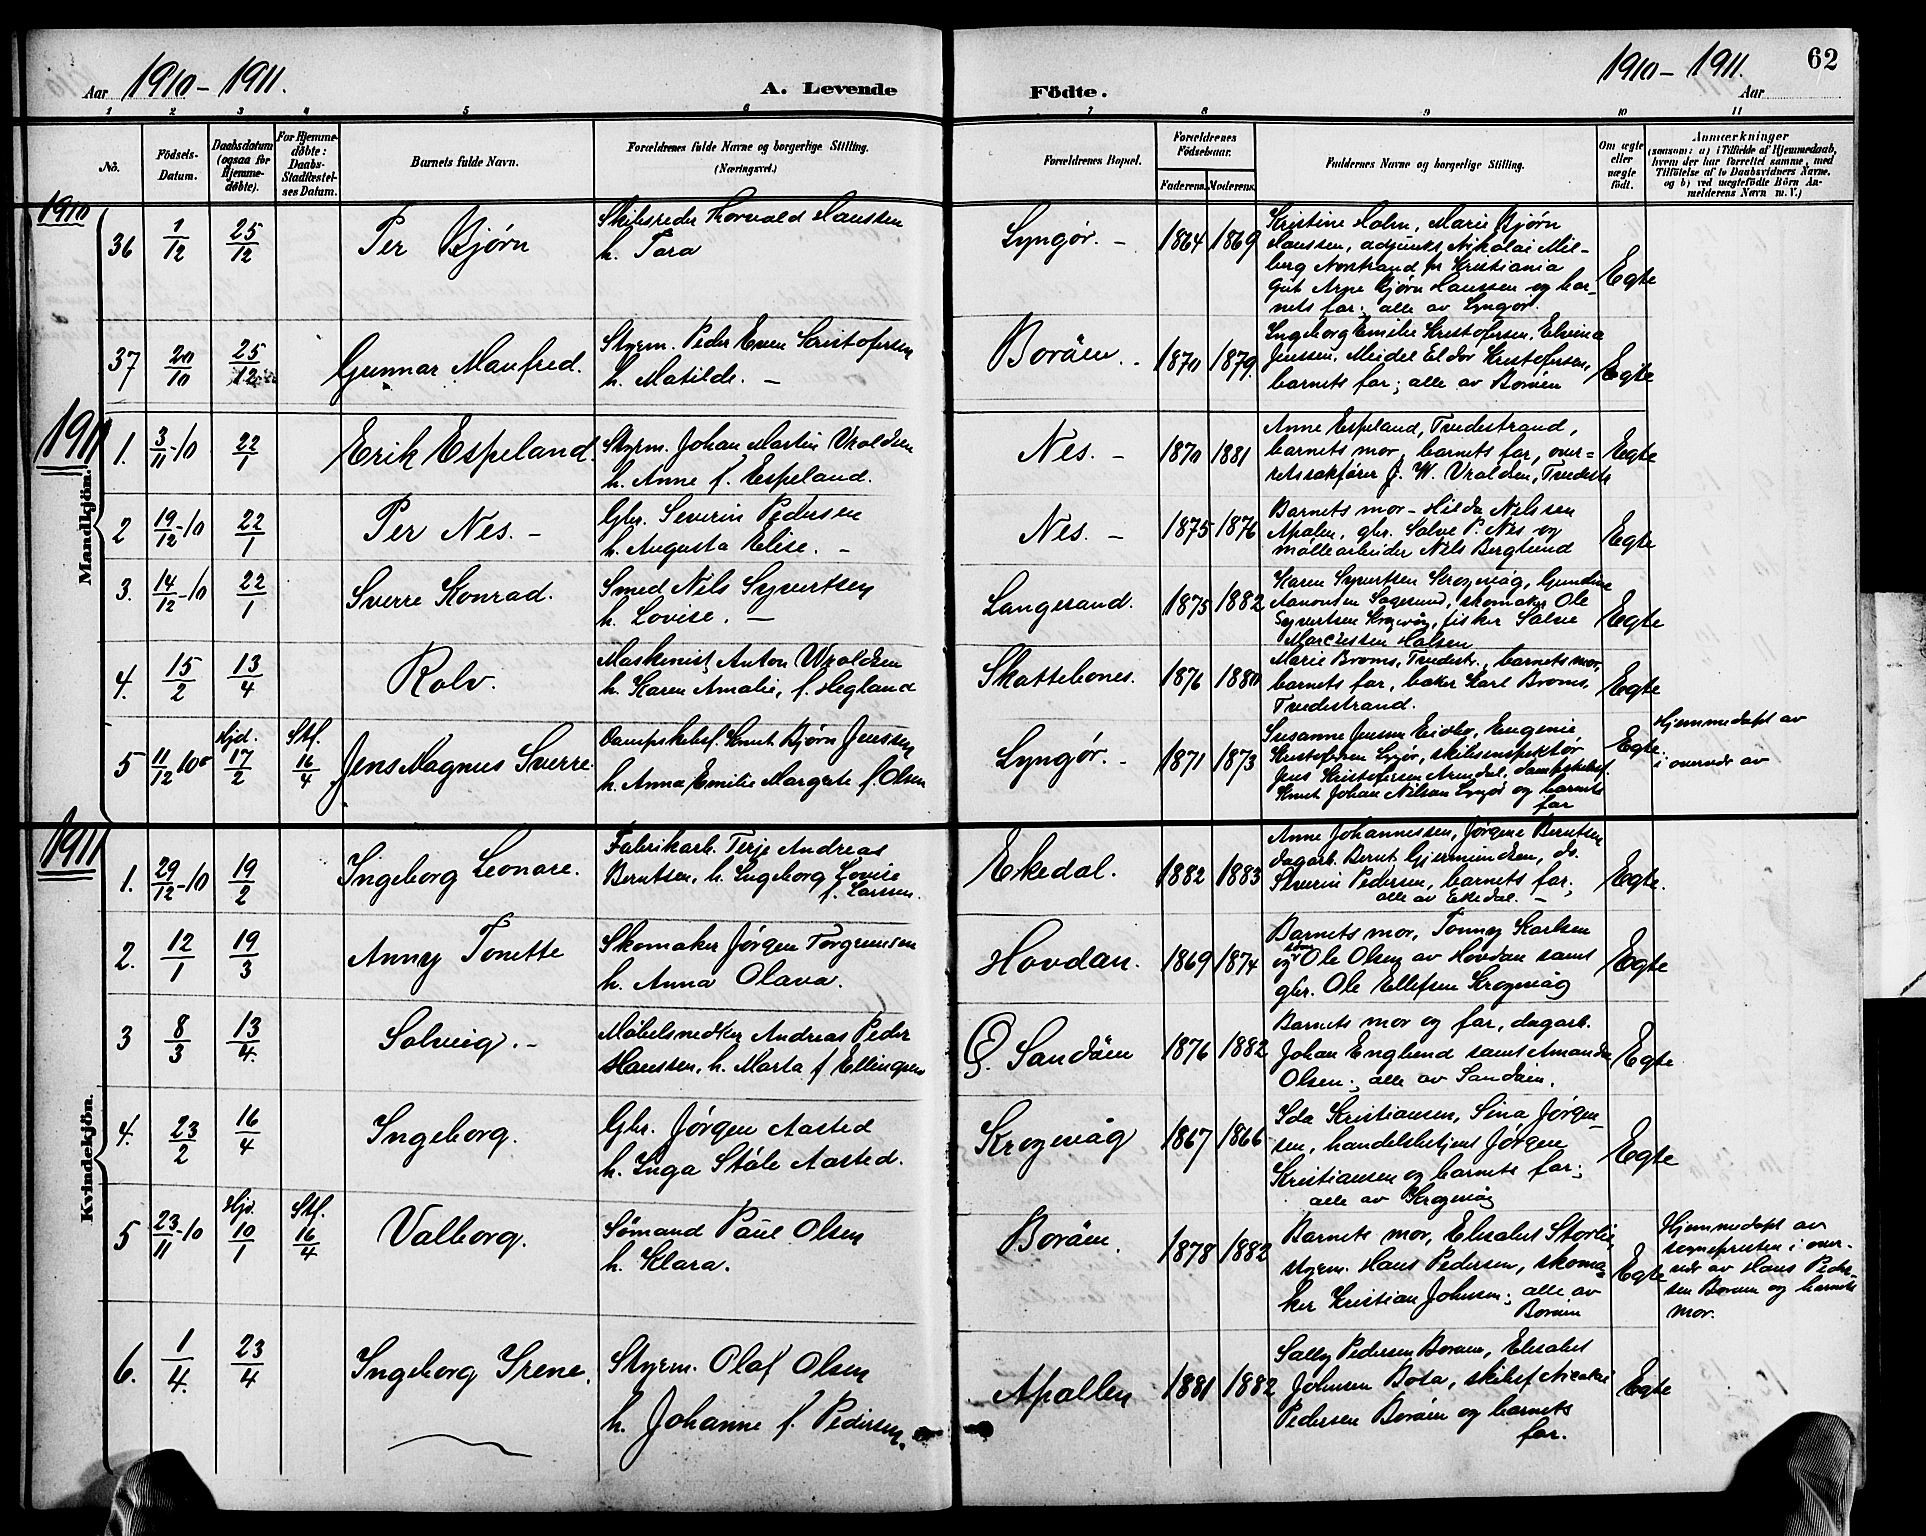 Aar 1910-1911. A. Levende
Födte. 1910-1911. Aar 62
1 2 3 4 5 6 7 8 9 10 11
No. Födsels-Datum. Daabsdatum (ogsaa for Hjemmedøbte). For Hjemmedøbte: Daabs-Stadfæstelses Datum. Barnets fulde Navn. Forældrenes fulde Navne og borgerlige Stilling. (Næringsvei.)
Forældrenes Bopæl. Forældrenes Födselsaar. Faderens. Moderens. Faddernes Navne og borgerlige Stilling. Om ægte eller uægte födt.
Anmærkninger
(saasom: a) i Tilfælde af Hjemmedaab,
hvem der har forrettet samme, med
Tilføielse af to Daabsvidners Navne,
og b) ved uegtefödte Börn An-
melderens Navn m. V.)
1910
Mandkjön.
36 1/12 25/12 Per Bjørn
Skibsreder Thorvald Hanssen
h. Tora
Lyngør. - 1864 1869
Kristine Holm, Marie Bjørn
Hanssen, adjunkt Nikolai Mil-
berg Norstrand pr Kristiania
Gut Arne Bjørn Hanssen og bar-
nets far; alle av Lyngør.
Egte
37 20/10 25/12 Gunnar Manfred.
Styrm. Peder Even Kristofersen
h. Matilde. -
Borøen. - 1870 1879.
Ingeborg Emilie Kristofersen, Elvina
Jenssen, Meidel Eldor Kristofersen,
barnets far; alle av Borøen
Egte
1911
1. 3/11-10 22/1 Erik Espeland.
Styrm. Johan Martin Vraldsen
h. Anne f. Espeland.
Nes. - 1870 1881
Anne Espeland, Tvedestrand,
barnets mor, barnets far, over-
retssakfører J. W. Vraldsen, Tvedestr
Egte
2 19/12-10 22/1 Per Nes. -
Gbr. Severin Pedersen
h. Augusta Elise. -
Nes. - 1875 1876
Barnets mor - Hilda Nilssen
Apalen, gbr. Salve P. Nes og
møllearbeider Nils Berglund
Egte
3. 14/12-10 22/1 Sverre Konrad.
Smed Nils Syvertsen
h. Lovise. -
Langesand. 1875 1882
Karen Syvertsen Krogvåg, Gundine
Aanonsen Sagesund, skomaker Ole
Syvertsen Krogvåg, fisker Salve
Marcussen Holsen
Egte
4. 15/2 13/4 Rolv.
Maskinist Anton Vraldsen
h. Karen Amalie, f. Hegland
Skattebones. 1876 1880
Marie Broms, Tvedestr., barnets mor,
barnets far, baker Karl Broms,
Tvedestrand.
Egte
5 11/12 10 Hjd. 17/2 Stf. 16/4 Jens Magnus Sverre.
Dampskibsf. Knut Bjørn Jenssen
h. Anna Emilie Margrete f. Olsen
Lyngør. - 1871 1873
Susanne Jensen Eidbo, Eugenie
Kristofersen Lyngør, skibsinspektør
Jens Kristofersen Arendal, dampskibsf.
Knut Johan Nilsen Lyngør og barnets
far
Egte.
Hjemmedøpt av
i overvær av
1911
Kvindekjön.
1. 29/12-10 19/2 Ingeborg Leonore.
Fabrikarb. Terje Andreas
Berntsen, h. Ingeborg Lovise
f. Larsen.
Ekedal. 1882 1883
Anne Johannessen, Jørgine Berntsen
dagarb. Bernt Gjermundsen, do.
Severin Pedersen, barnets far;
alle av Ekedal. -
Egte.
2. 12/1 19/3 Anny Tonette
Skomaker Jørgen Torgrimsen
h. Anna Olava.
Hovdan. 1869 1874
Barnets mor, Tonny Karlsen
og Ole Olsen av Hovdan samt
gbr. Ole Ellefsen Krogvåg
Egte
3 8/3 13/4. Solveig. -
Møbelsnedker Andreas Peder
Hanssen, h. Marta f Ellingsen
Ø. Sandøen 1876 1882
Barnets mor og far, dagarb.
Johan Englund samt Amanda
Olsen; alle av Sandøen.
Egte
4. 23/2 16/4 Ingeborg.
Gbr. Jørgen Aasted
h. Inga Ståle Aasted.
Krogvåg 1867 1866
Ida Kristiansen, Sina Jørgen-
sen, handelsbetjent Jørgen
Kristiansen og barnets far;
alle av Krogvåg
Egte
5 23/11-10 Hjd. 10/1 Stf. 16/4 Valborg.
Sømand Paul Olsen
h. Klara.
Borøen. 1878 1882
Barnets mor, Elisabet Storli,
styrm. Hans Pedersen, skoma-
ker Kristian Johnsen; alle av
Borøen
Egte
Hjemmedøpt av
sogneprästen i over-
vær av Hans Peder-
sen Borøen og barnets
mor.
6. 1/4. 23/4 Ingeborg Irene.
Styrm. Olaf Olsen
h. Johanne f. Pedersen.
Apallen 1881 1882
Sally Pedersen Borøen, Elisabet
Johnsen Bota, skibsf
Pedersen Borøen og barnets
far.
Egte